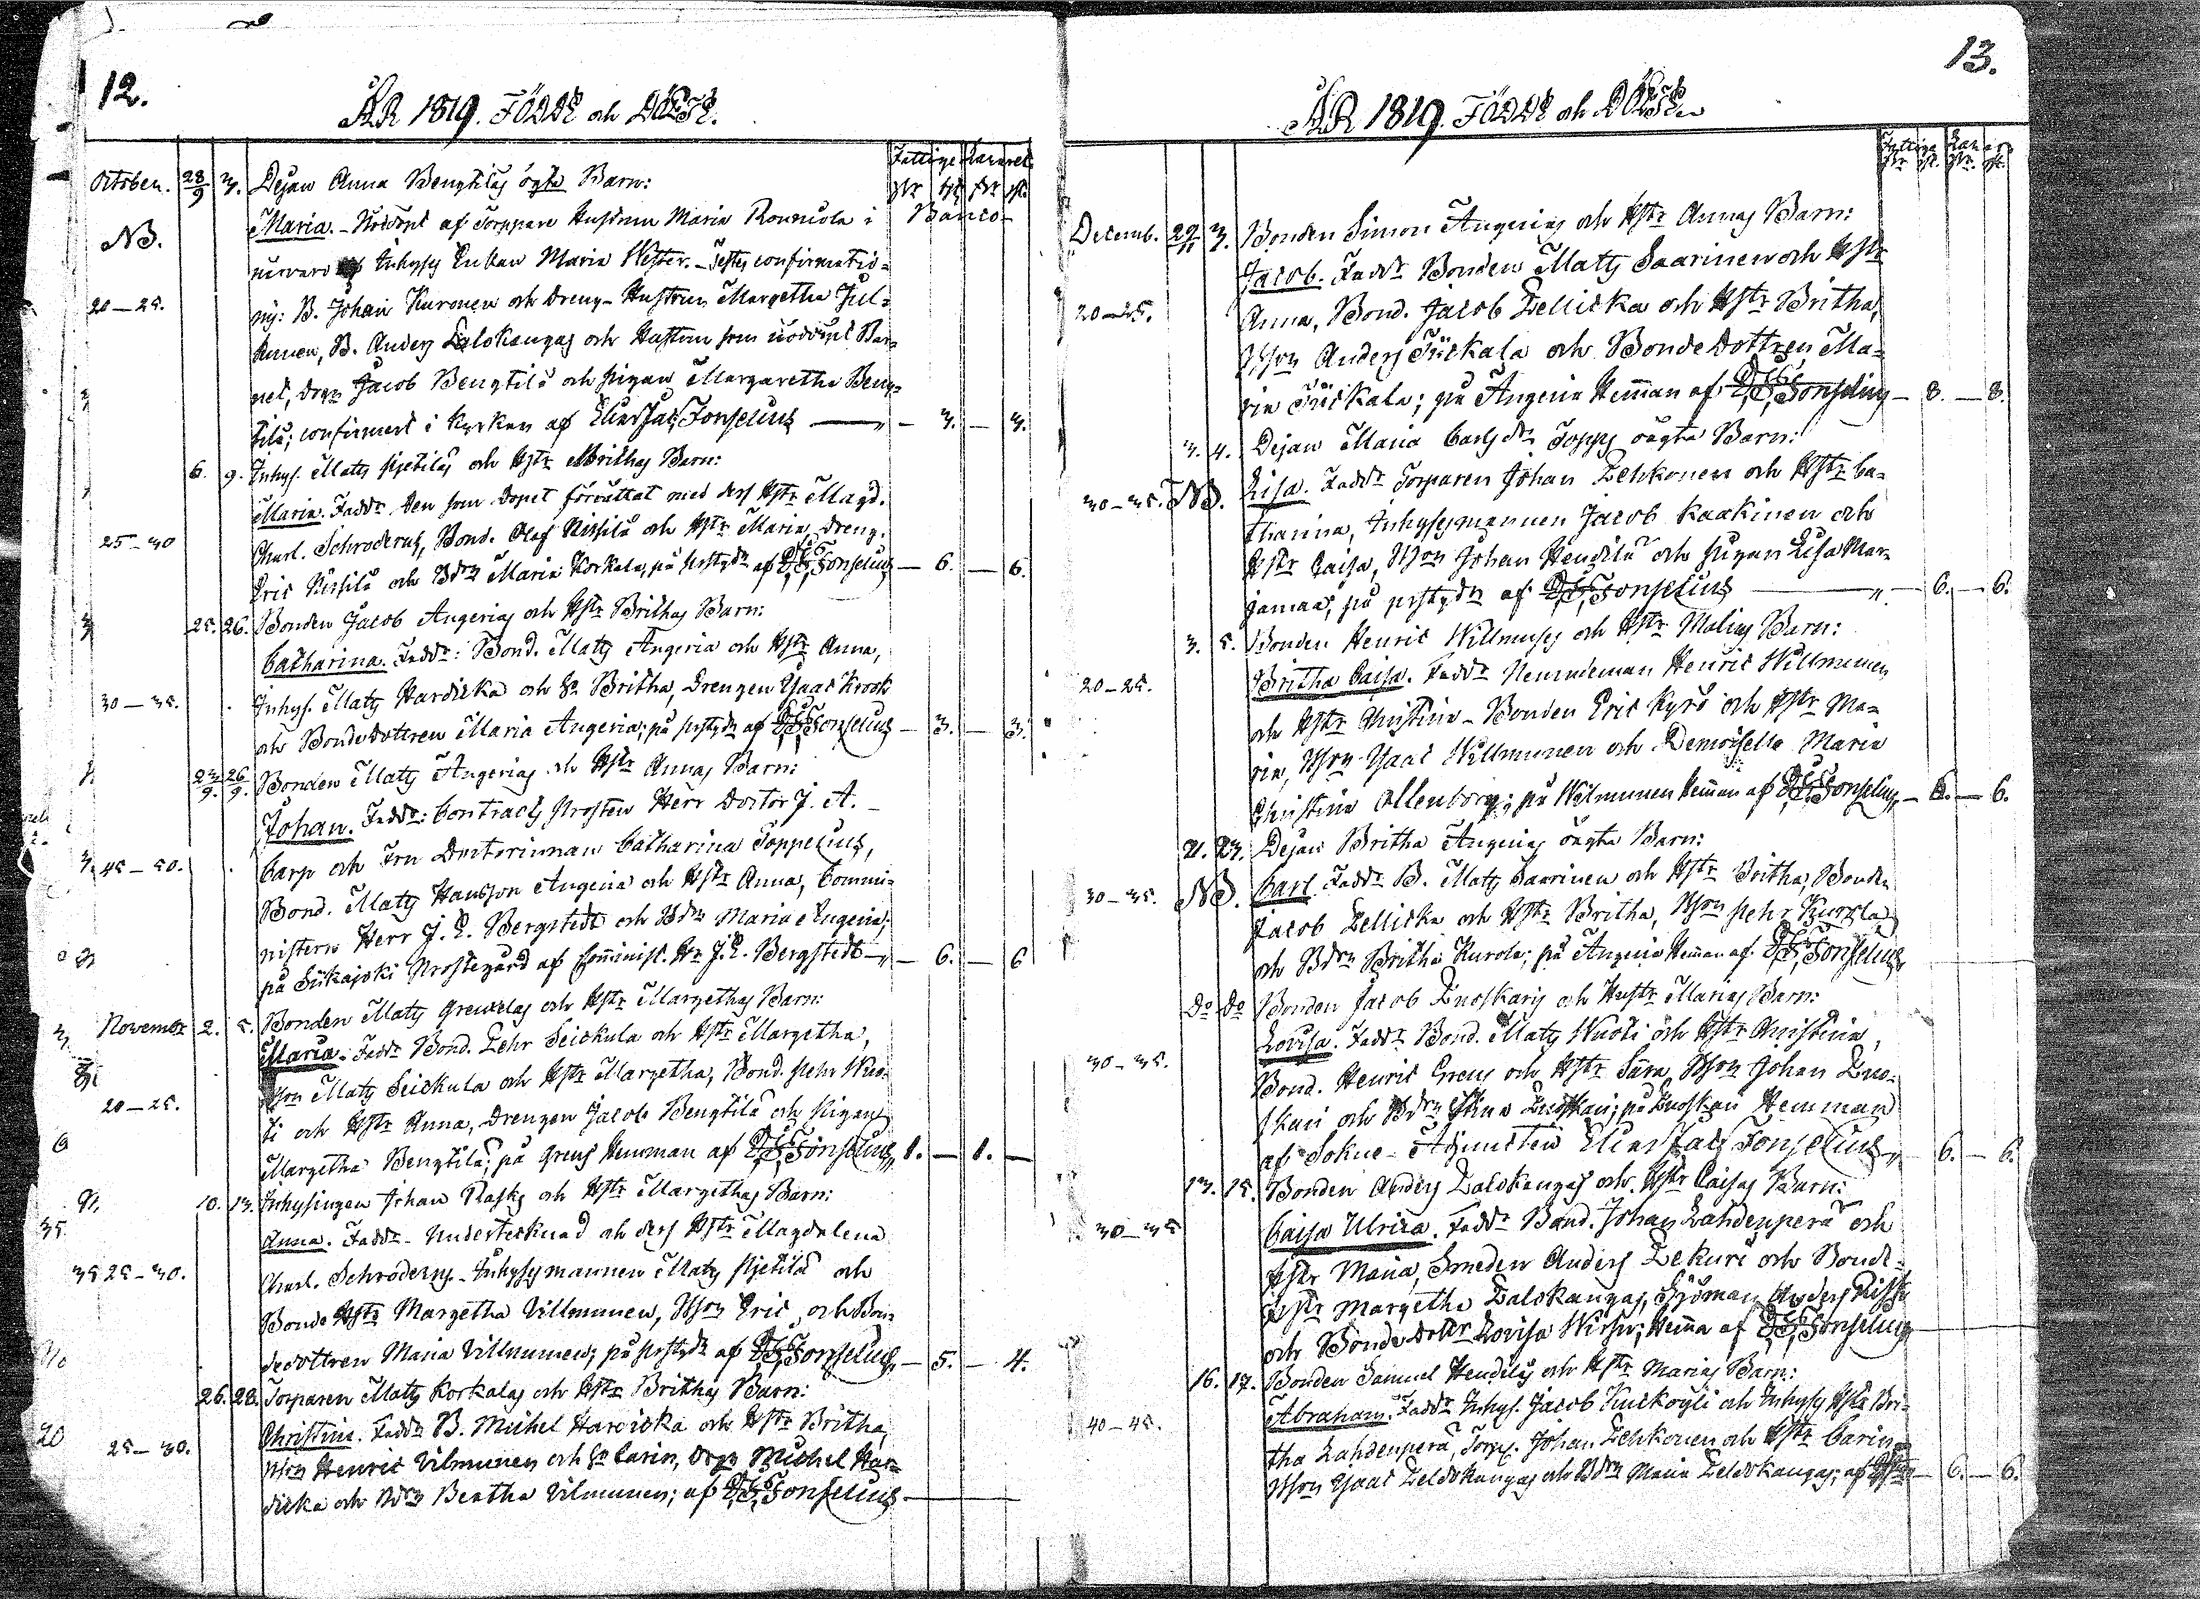 12.
ÅR 1819. FÖDDE och DÖPTE.
Fattige Lazaret
October. 28/9 3. Dejan Anna Bengtilas ögta Barn:
Banco
NB. Maria. Nöddöpt af Torppare Hustrun Maria Ronnuola i
närvaro af Inhyses Enkan Maria Wester. Testes confirmatio=
20-25. nis: B. Johan Kuronen och Dreng-Hustrun Margetha Jul=
kunen, B. Anders Lalokangas och Hustrun som nöddöpt Bar=
net, Drgn Jacob Bengtilä och Pigan Margaretha Beng=
tilä; confirmert i Kyrkan af Elias Jac. Fonselius 3. 3.
6. 9. Inhys. Matts Pietiläs och Hstr Brithas Barn:
Maria. Faddr Den som Döpet förrättat med dess Hstr Magd.
25-30 Charl. Schroderus, Bond. Olof Nissilä och Hstr Maria, Dreng.
Eric Nissilä och Bdrn Maria Korkala, på Prstgdn af EJFonselius 6. 6.
25. 26. Bonden Jacob Angerias och Hstr Brithas Barn:
Catharina. Faddr: Bond. Matts Angeria och Hstr Anna,
30-35. Inhys. Matts Hardicka och Hu Britha, Drengen Isaac Krook
och Bondedottren Maria Angeria; på Prstgdn af EJFonselius 3. 3.
23/9. 26/9. Bonden Matts Angerias och Hstr Annas Barn:
Johan. Faddr: Contracts Prosten Herr Doctor J. A.
45-50. Carp och Fru Doctorinnan Catharina Toppelius,
Bond. Matts Hansson Angeria och Hstr Anna, Commi=
nistern Herr J. E. Bergstedt och Bdrn Maria Angeria;
på Siikajoki Prostegård af Comminist. Hr J. E. Bergstedt 6. 6
Novembr 2. 5. Bonden Matts Greuxelas och Hstr Margethas Barn:
Maria. Faddr Bond. Pehr Seickula och Hstr Margetha,
Bson Matts Seickula och Hstr Margetha, Bond. Pehr Wuo=
20-25. ti och Hstr Anna, Drengen Jacob Bengtilä och Pigan
Margetha Bengtilä; på Greus Hemman af EJFonselius 1. 1.
10. 13. Inhysingen Johan Rasks och Hstr Margethas Barn:
Anna. Faddr Undertecknad och dess Hstr Magdalena
25-30. Charl. Schroderus, Inhysesmannen Matts Pietilä och
Bonde Hstr Margetha Villmunen, Bson Eric, och Bon=
dedottren Maria Villmunen; på Prstgdn af EJFonselius 5. 4.
26. 28. Torparen Matts Korkalas och Hstr Brithas Barn:
Christina. Faddr B. Michel Hardicka och Hstr Britha,
25-30. Bson Henric Vilmunen och Hu Carin, Drgn Michel Har=
dicka och Bdrn Beatha Vilmunen; af EJFonselius
13.
ÅR 1819. FÖDDE och DÖPTE.
Fattige Lazaret
Decemb. 29/11 3. Bonden Simon Angerias och Hstr Annas Barn:
Jacob. Faddr Bonden Matts Saarinen och Hstr
20-25. Anna, Bond. Jacob Zellicka och Hstr Britha,
Bson Anders Tückala och Bonde Dottren Ma=
ria Tückala; på Angeria Hemman af EJFonselius 8. 8.
3. 4. Dejan Maria Carls dr Topps öagta Barn:
30-35. NB. Lisa. Faddr Torparen Johan Lehkonen och Hstr Ca=
tharina, Inhysesmannen Jacob Kaakinen och
Hstr Caisa, Bson Johan Hendilä och Pigan Lisa Mar=
jamaa, på Prstgdn af EJFonselius 6. 6.
3. 5. Bonden Henric Willmuses och Hstr Malins Barn:
20-25. Britha Caisa. Faddr Nemndeman Henric Willmunen
och Hstr Christina, Bonden Eric Kyrö och Hstr Ma=
ria, Bson Isaac Willmunen och Demoiselle Maria
Christina Allenborg; på Wilmunen Hemman af EJFonselius 6. 6.
21. 23. Dejan Britha Angerias öagta Barn:
30-35. NB. Carl. Faddr B. Matts Saarinen och Hstr Britha, Bonden
Jacob Zellicka och Hstr Britha, Bson Pehr Kurola
och Bdrn Britha Kurola; på Angeria Hemman af EJFonselius
Do Do Bonden Jacob Luoskaris och Hustr Marias Barn:
Lovisa. Faddr Bond. Matts Wuoti och Hstr Christina,
30-35. Bond. Henric Greus och Hstr Sara, Bson Johan Luo=
skari och Bdrn Stina Luoskari; på Luoskari Hemman
af Sokne-Adjuncten Elias Jac Fonselius 6. 6.
13. 15. Bonden Anders Lalokangas och Hstr Caisas Barn:
30-35 Caisa Ulrica. Faddr Bond. Johan Lahdenperä och
Hstr Maria, Smeden Anders Lekuri och Bonde=
Hstr Margetha Lalokangas, Sjöman Anders
och Bonde Dottr Lovisa Wirsu; Hemma af EJFonselius
16. 17. Bonden Samuel Hendiläs och Hstr Marias Barn:
40-45. Abraham. Faddr Inhys. Jacob Kuckoyli och Inhyses Hstr Bri=
tha Lahdenperä, Torp. Johan Lehkonen och Hstr Carin,
Bson Isaac Lelokangas och Bdrn Maria Lelokangas; af 6. 6.